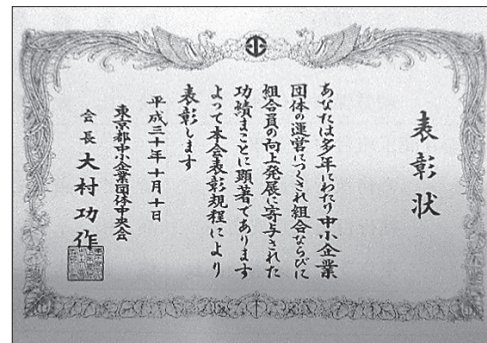 表彰状
あなたは多年にわたり中小企業
団体の運営につくされ組合ならびに
組合員の向上発展に寄与された
功績まことに顕著であります
よって本会表彰規程により
表彰します
平成三十年十月十日
東京都中小企業団体中央会
会長 大村功作